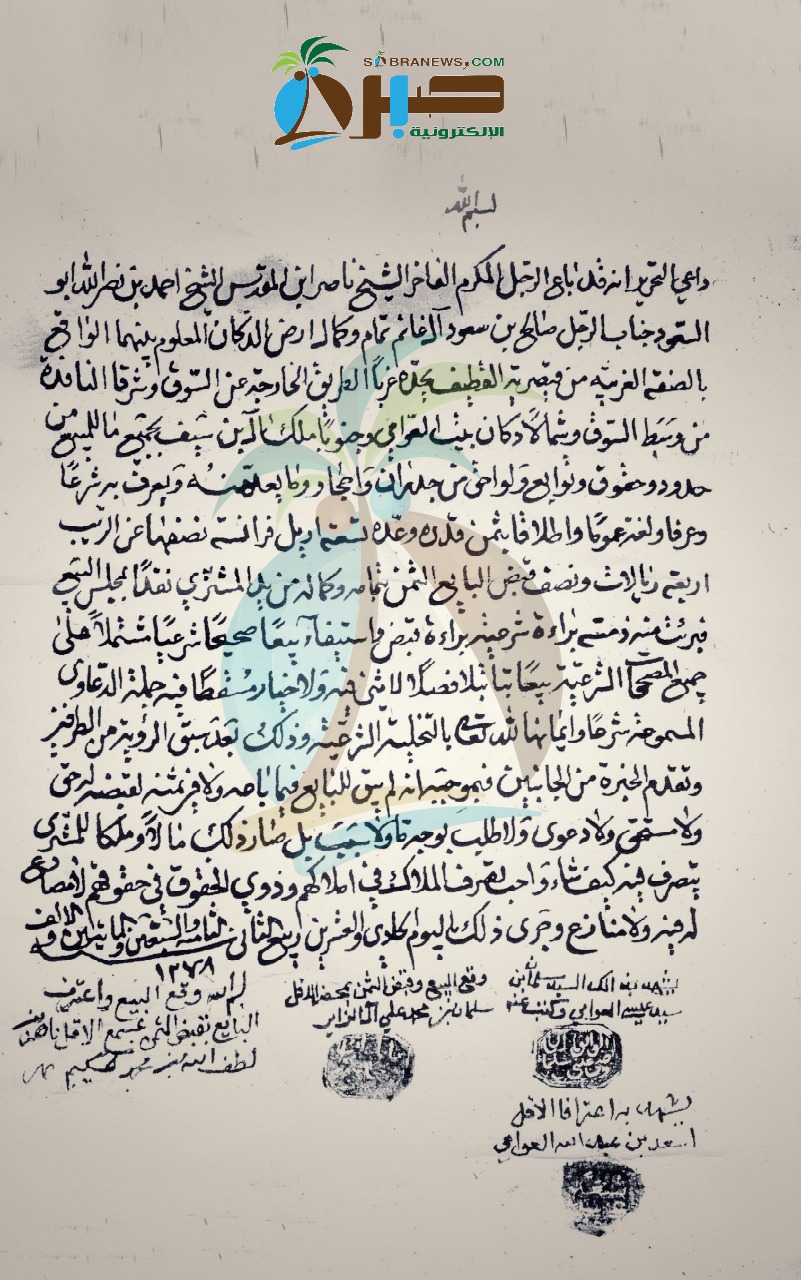 SOBRANEWS.COM
صبرة
الإلكترونية
بسم الله
داعي التحرير انه قد باع الرجل المكرم الفاخر الشيخ ناصر ابن المقدس الشيخ احمد بن نصر الله ابو
السعود جناب الرجل صالح بن سعود آل غانم تمام وكمال ارض الدكان المعلوم بينهما الواقع
بالصفة الغربيه من قيصرية القطيف يحده غرباً الطريق الخارجة عن السوق وشرقا النافذة
من وسط السوق وشمالاً دكان بيت العوامي وجنوباً ملك آل بن سيف بجميع ما للمبيع من
حدود وحقوق وتوابع ولواحق من جدران واحجار وما يعد منه ويعرف به شرعاً
وعرفا ولغة عموما واطلاقا بثمن قدره وعده تسعة اريل فرانسه نصفها عن الريب
اربعة ريالات ونصف قبض البايع الثمن بتمامه وكماله من يد المشتري نقدًا بمجلس البيع
فبرئت منه ذمته براءة شرعية براءة قبض واستيفآء بيعًا صحيحًا شرعيًا مشتملاً على
جميع المصححات الشرعية بيعًا بتاً بتلا فصلاً لا ثني فيه ولا خيار مسقطا فيه جملة الدعاوى
المسموعة شرعا وايمانها لله تعالى بالتخلية الشرعية وذلك بعد سبق الرؤية من الطرفين
وتقدم الخبرة من الجانبين فبموجبه انه لم يبق للبايع فيما باعه ولا في ثمنه لقبضه له حق
ولا مستحق ولا دعوى ولا طلب بوجه ما ولا بسبب بل صار ذلك مالاً وملكا للمشتري
يتصرف فيه كيف شاء واحب تصرف الملاك في املاكهم وذوي الحقوق في حقوقهم لا معارض
له فيه ولا منازع وجرى ذلك باليوم الحادي والعشرين ربيع الثاني الثامنة والسبعين والمايتين والالف
١٢٧٨
يشهد بذلك السيد سلمان بن
سيد عيسى العوامي وكتب عنه
وقع البيع وقبض الثمن بمحضر الاقل
سلمان بن محمد علي آل الزاير
بسم الله وقع البيع واعترف
البايع بقبض الثمن بمسمع الاقل ناصر بن
لطف الله بن محمد حكيم
يشهد به اعترافا الاقل
اسعد بن عبد الله العوامي